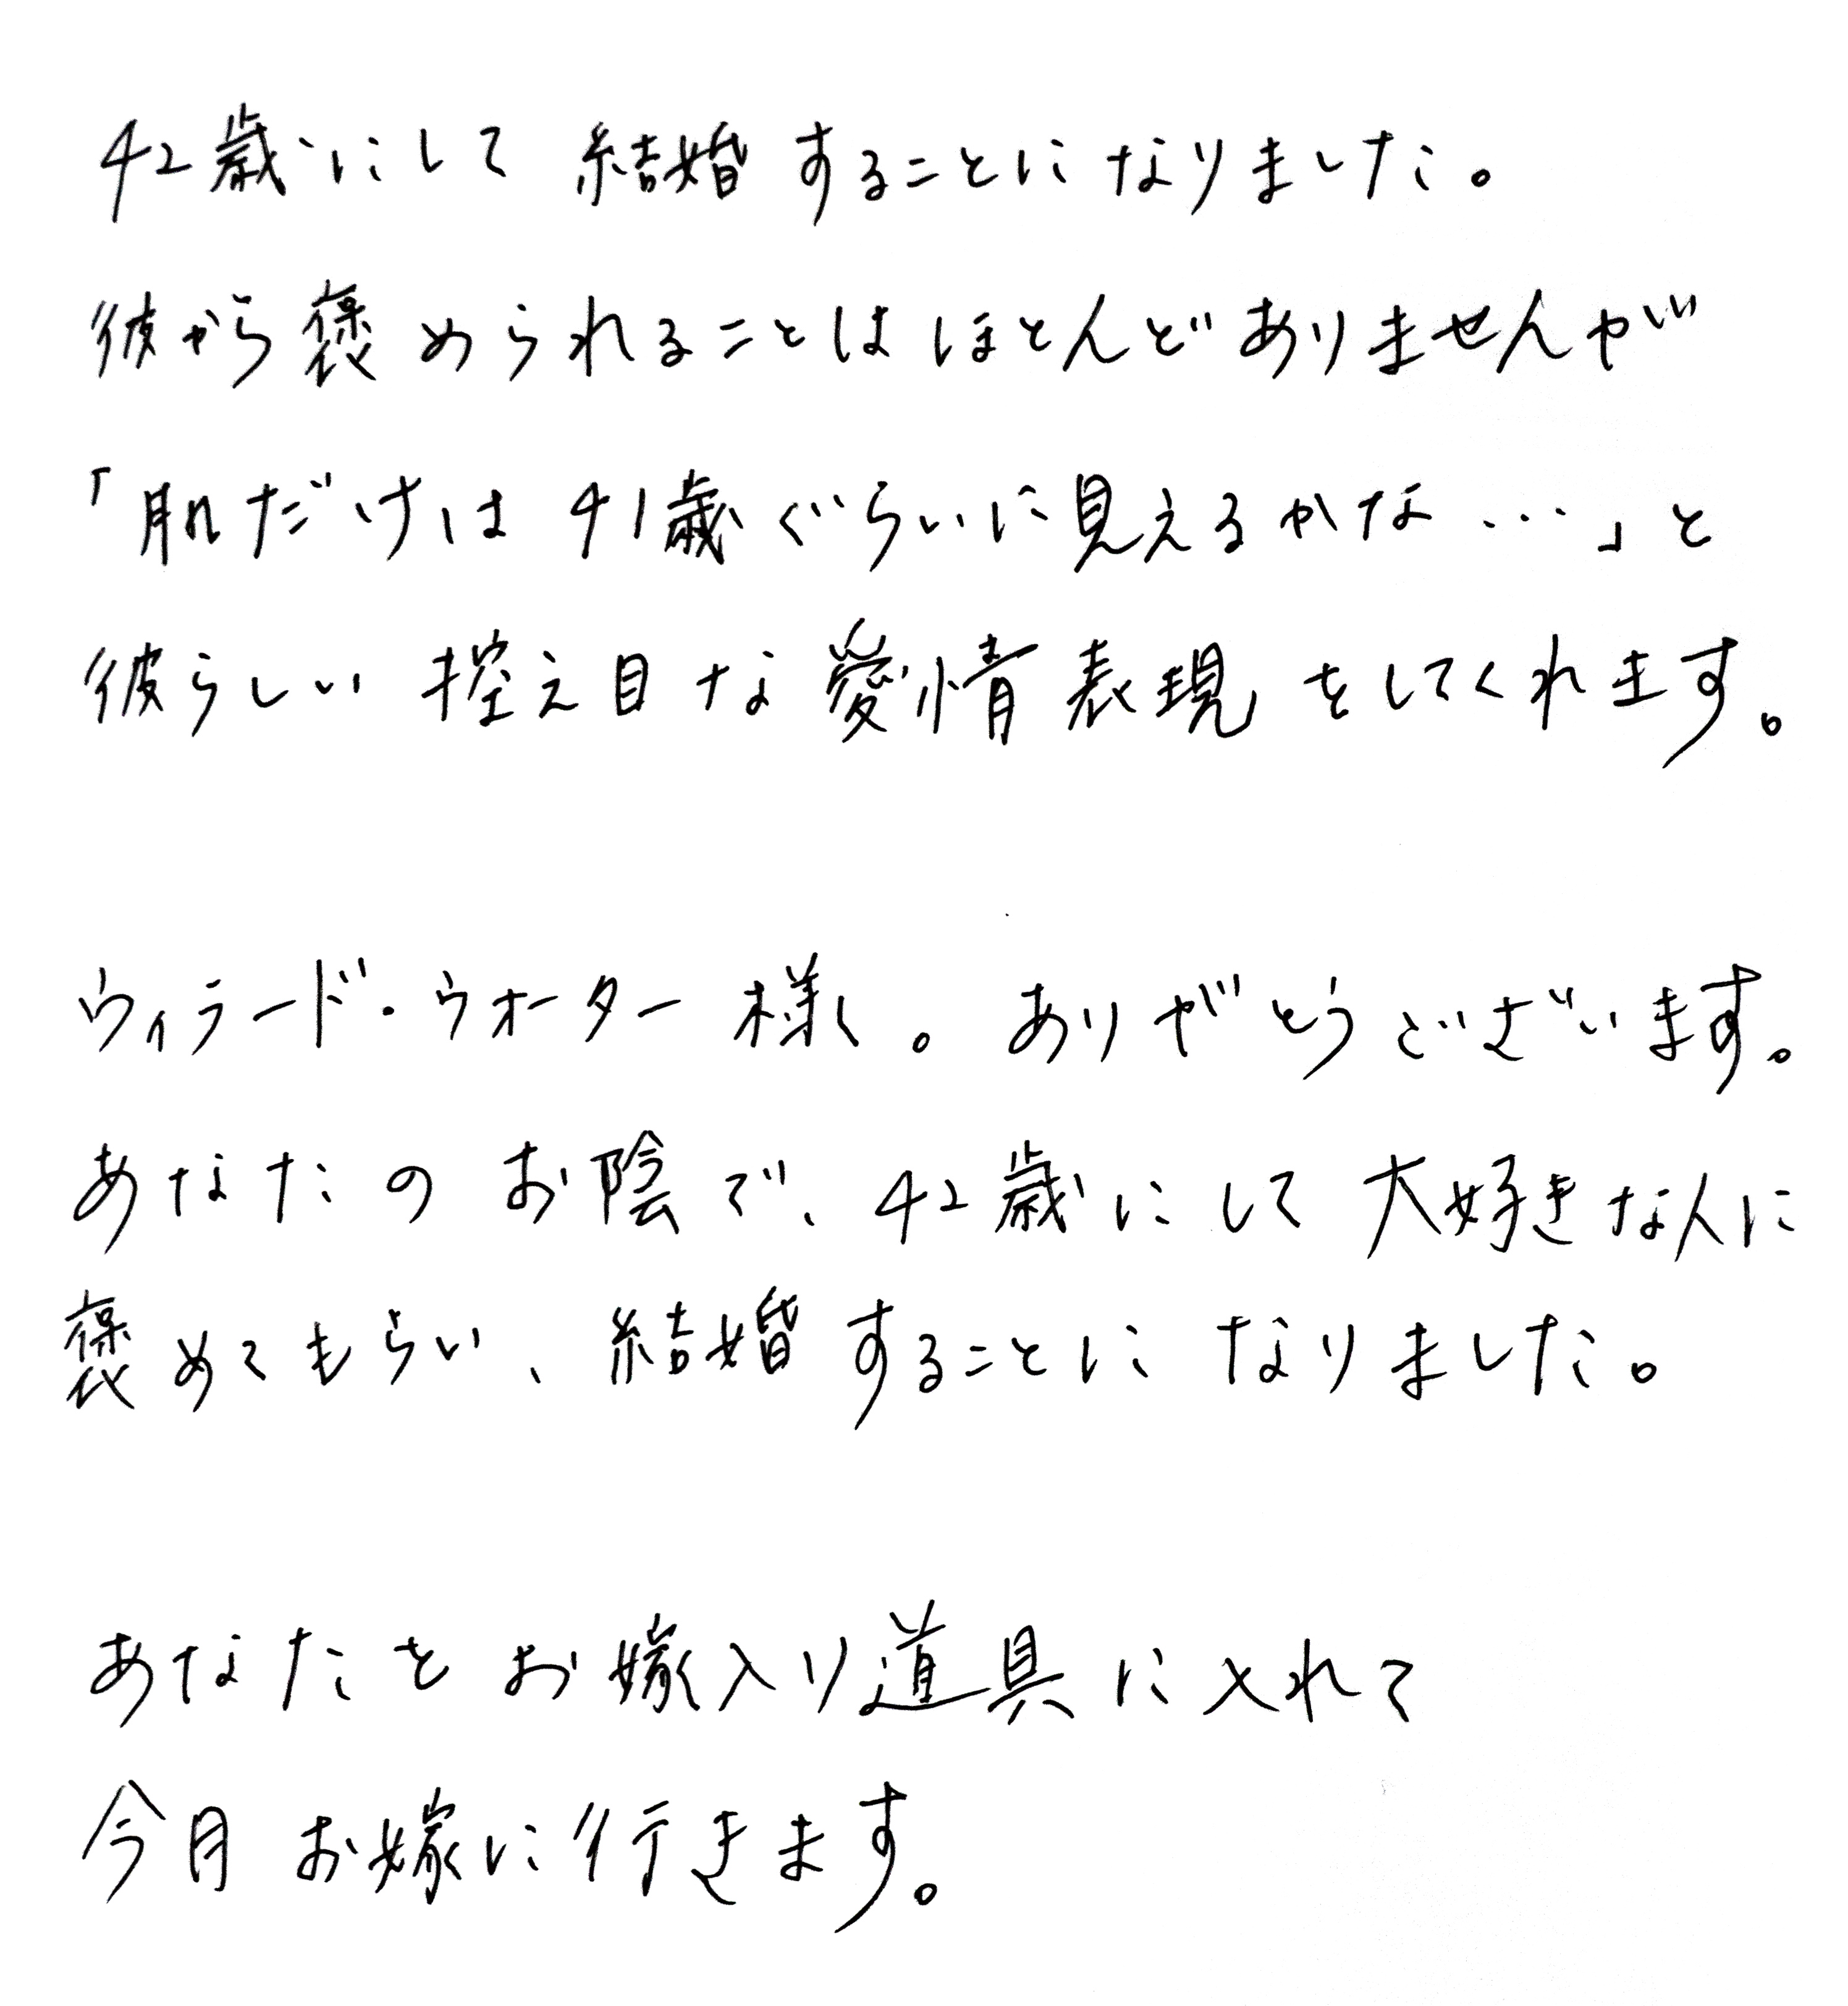 42歳にして結婚することになりました。
彼から褒められることはほとんどありませんが
「肌だけは41歳ぐらいに見えるかな…」と
彼らしい控え目な愛情表現をしてくれます。
ウィラード・ウォーター様。ありがとうございます。
あなたのお陰で、42歳にして大好きな人に
褒めてもらい、結婚することになりました。
あなたをお嫁入り道具に入れて
今月お嫁に行きます。